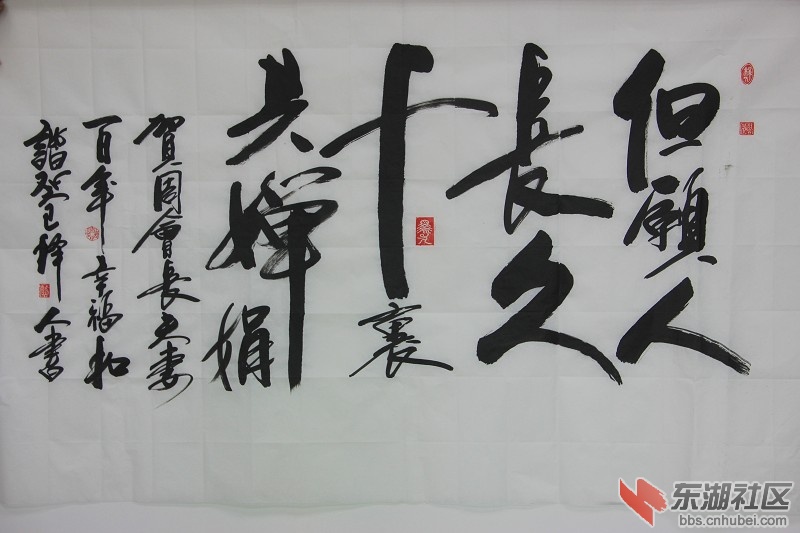 但願人
長久
千裏
共嬋娟
賀周會長夫妻
百年幸福和
諧癸巳人書
东湖社区
bbs.cnhubei.com